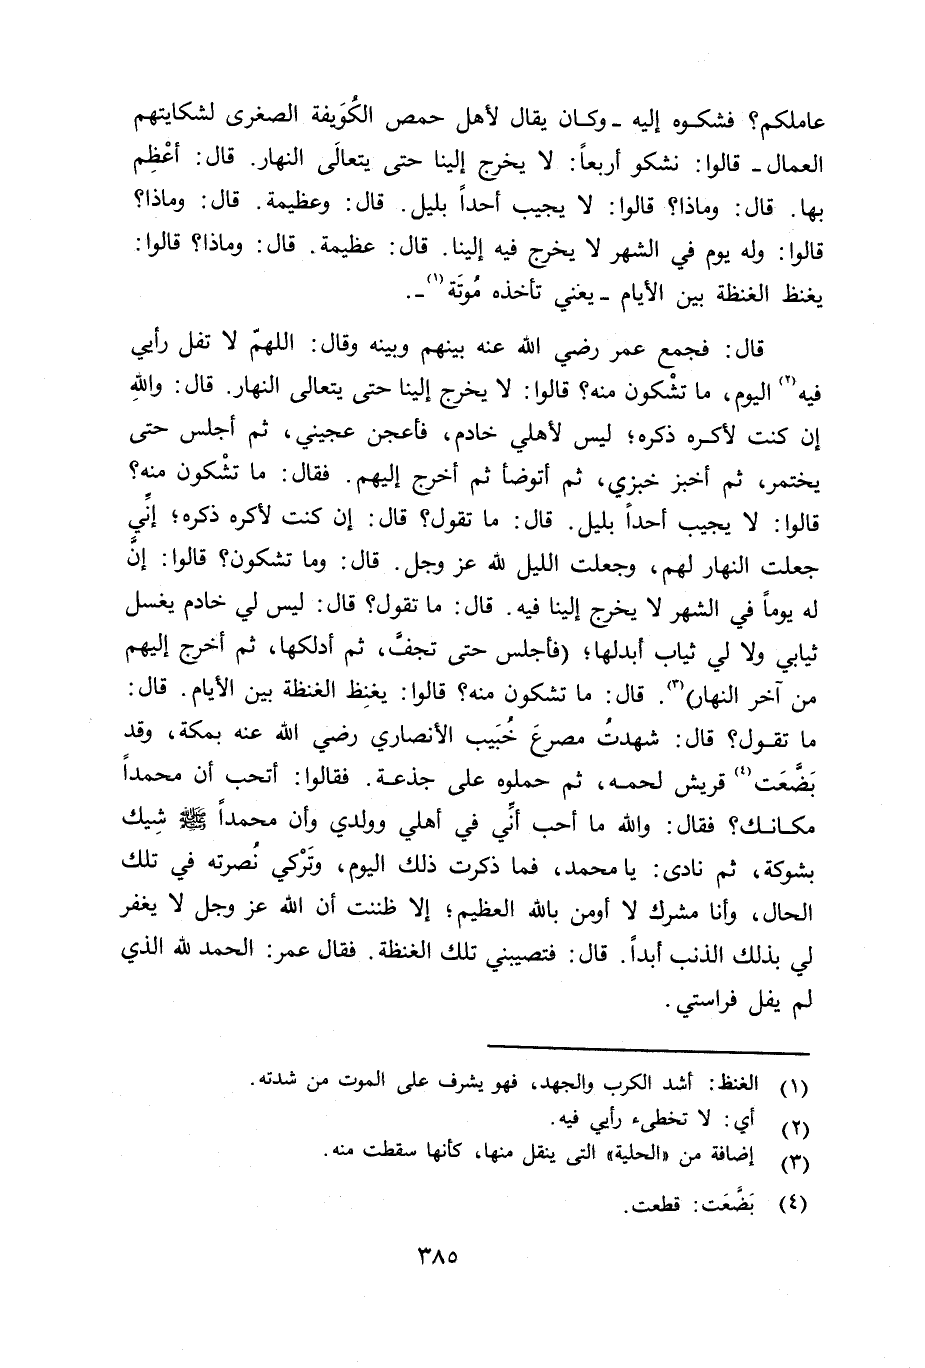 عاملكم؟ فشكـوه إليه ـ وكـان يقال لأهل حمص الكُوَيفة الصغرى لشكايتهم
العمال ـ قالوا: نشكو أربعاً: لا يخرج إلينا حتى يتعالَى النهار. قال: أعْظِم
بها. قال: وماذا؟ قالوا: لا يجيب أحداً بليل. قال: وعظيمة. قال: وماذا؟
قالوا: وله يوم في الشهر لا يخرج فيه إلينا. قال: عظيمة. قال: وماذا؟ قالوا:
يغنظ الغنظة بين الأيام ـ يعني تأخذه مُوتَة(١) ـ.
قال: فجمع عمر رضي الله عنه بينهم وبينه وقال: اللهمّ لا تفل رأيي
فيه(٢) اليوم، ما تشْكون منه؟ قالوا: لا يخرج إلينا حتى يتعالى النهار. قال: واللهِ
إن كنت لأكـره ذكره؛ ليس لأهلي خادم، فأعجن عجيني، ثم أجلس حتى
يختمر، ثم أخبز خبزي، ثم أتوضأ ثم أخرج إليهم. فقال: ما تشْكون منه؟
قالوا: لا يجيب أحداً بليل. قال: ما تقول؟ قال: إن كنت لأكره ذكره؛ إنِّي
جعلت النهار لهم، وجعلت الليل لله عز وجل. قال: وما تشكون؟ قالوا: إنَّ
له يوماً في الشهر لا يخرج إلينا فيه. قال: ما تقول؟ قال: ليس لي خادم يغسل
ثيابي ولا لي ثياب أبدلها؛ (فأجلس حتى تجفَّ، ثم أدلكها، ثم أخرج إليهم
من آخر النهار)(٣). قال: ما تشكون منه؟ قالوا: يغنِظ الغنظة بين الأيام. قال:
ما تقـول؟ قال: شهدتُ مصرعَ خُبَيب الأنصاري رضي الله عنه بمكة، وقد
بَضَّعَت(٤) قريش لحمـه، ثم حملوه على جذعـة. فقالوا: أتحب أن محمداً
مكـانـك؟ فقال: والله ما أحب أنِّي في أهلي وولدي وأن محمداً ﷺ شِيك
بشوكة، ثم نادى: يا محمد، فما ذكرت ذلك اليوم، وتَرْكي نُصرته في تلك
الحال، وأنا مشرك لا أومن بالله العظيم؛ إلا ظننت أن الله عز وجل لا يغفر
لي بذلك الذنب أبداً. قال: فتصيبني تلك الغنظة. فقال عمر: الحمد لله الذي
لم يفل فراستي.
(١) الغنظ: أشد الكرب والجهد، فهو يشرف على الموت من شدته.
(٢) أي: لا تخطىء رأيي فيه.
(٣) إضافة من «الحلية» التى ينقل منها، كأنها سقطت منه.
(٤) بَضَّعَت: قطعت.
٣٨٥